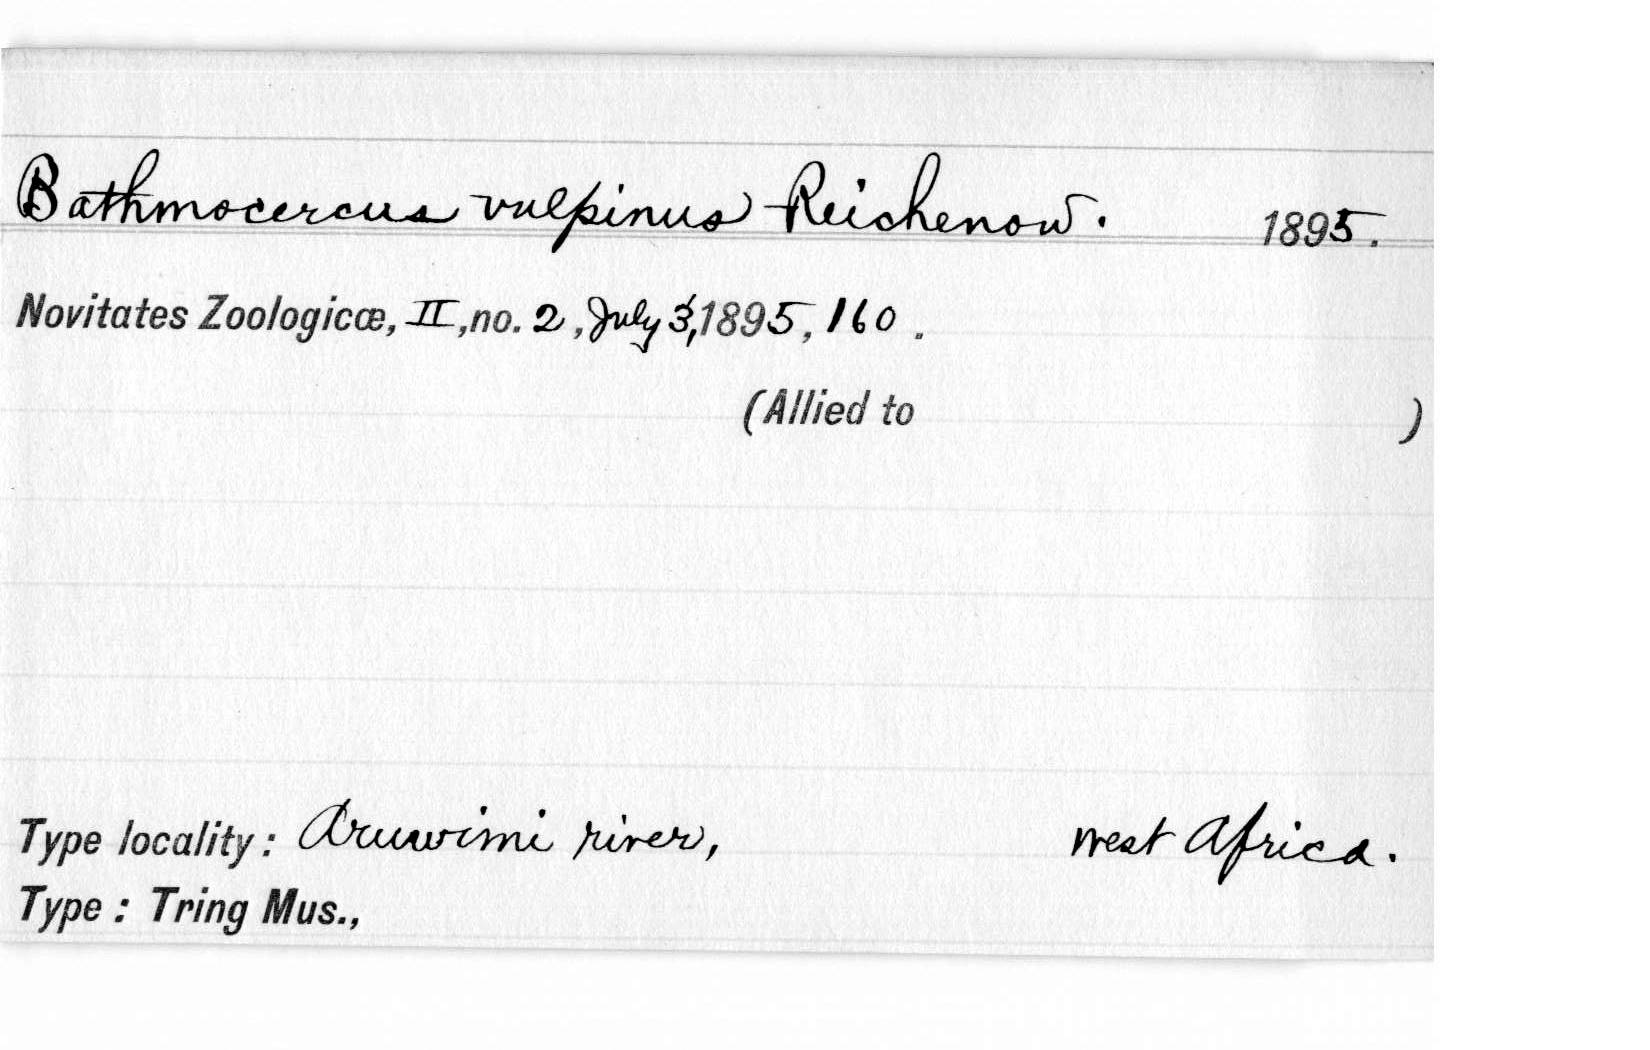 Bathmocercus vulpinus Reichenow. 1895.
Novitates Zoologicæ, II, no. 2, July 3, 1895, 160.
(Allied to )
Type locality: Aruwimi river, west Africa.
Type: Tring Mus.,